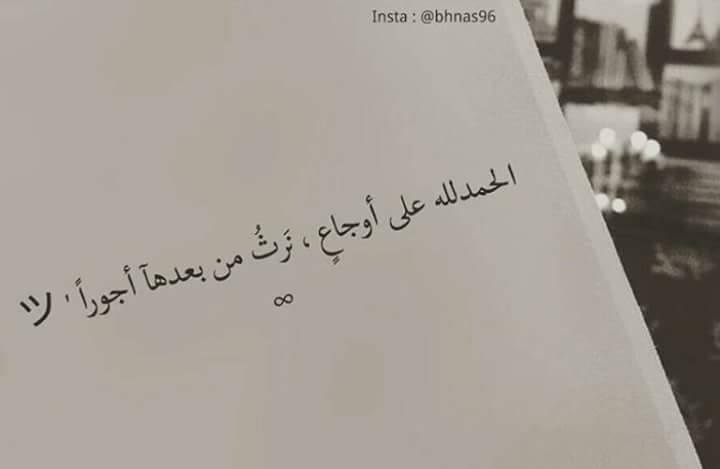 Insta : @bhnas96
الحمدلله على أوجاعٍ ، نَرثُ من بعدهآ أجوراً '
∞